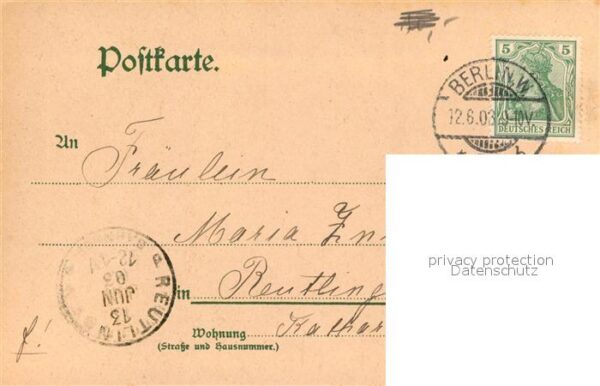 Postkarte.
5 5
DEUTSCHES REICH
BERLIN. W.
12.6.03.9-10V.
* h
An
Fräulein
Maria
Reutling
in
Wohnung
(Straße und Hausnummer.)
Kathar
REUTLINGEN
13
JUN
03
privacy protection
Datenschutz